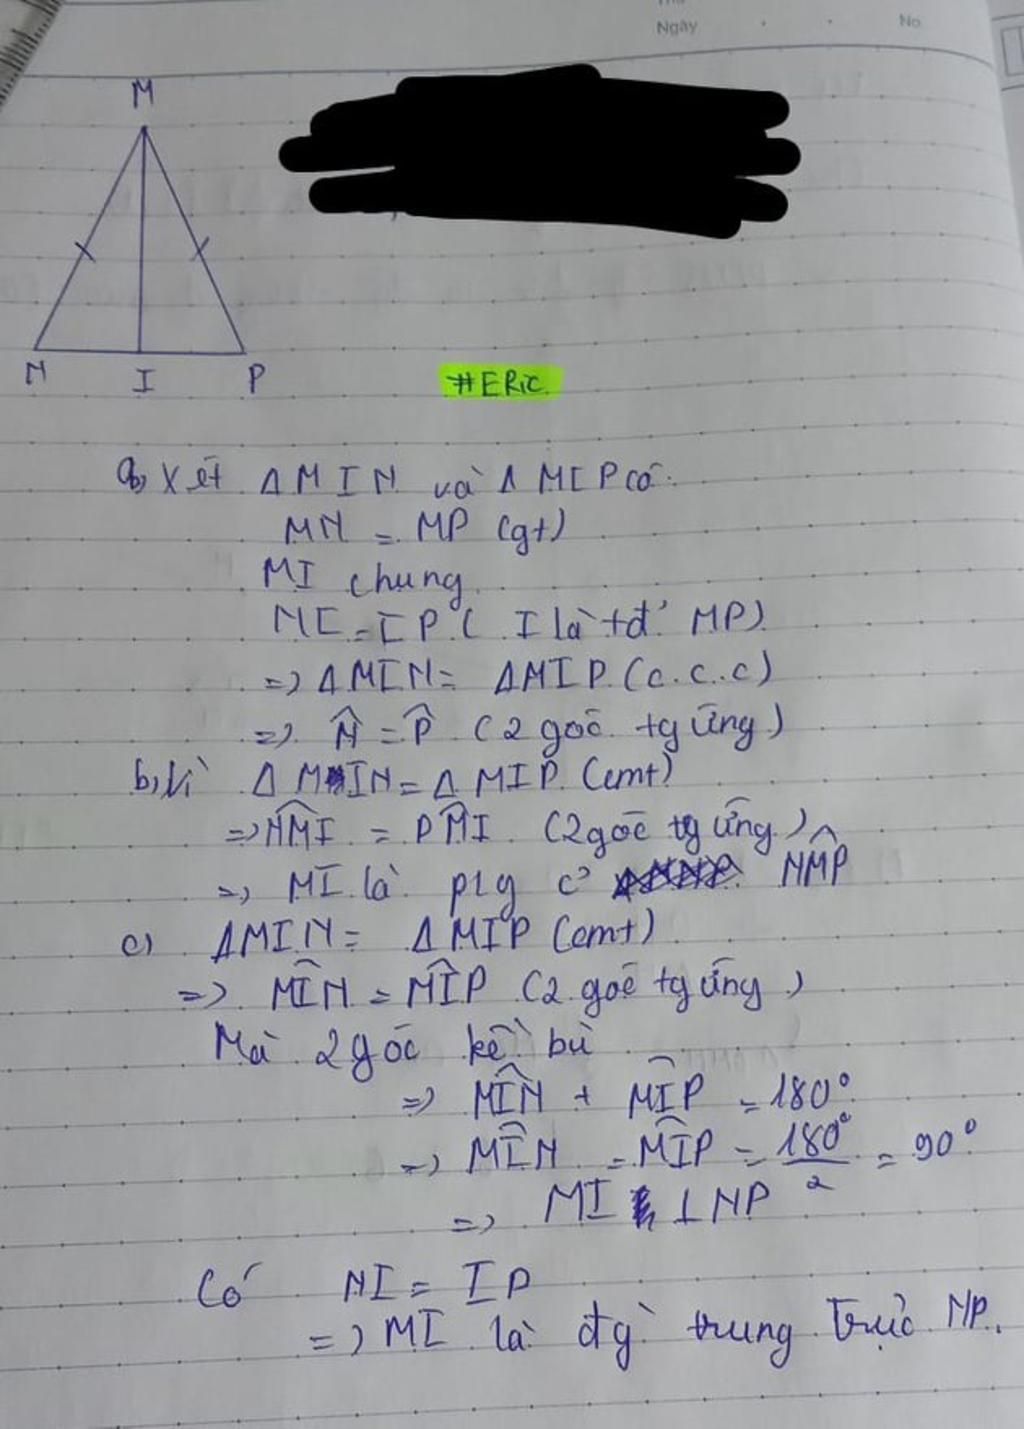 Thứ
Ngày No.
M
N I P
#ERiC
a, Xét Δ MIN và Δ MIP có:
MN = MP (gt)
MI chung
NI = IP ( I là tđ' NP)
=> Δ MIN = Δ MIP (c.c.c)
=> N̂ = P̂ (2 góc tg ứng)
b, Vì Δ MIN = Δ MIP (cmt)
=> NM̂I = PM̂I (2 góc tg ứng)
=> MI là p/g c² NM̂P
c) Δ MIN = Δ MIP (cmt)
=> MÎN = MÎP (2 góc tg ứng)
Mà 2 góc kề bù
=> MÎN + MÎP = 180°
=> MÎN = MÎP = 180°/2 = 90°
=> MI ⊥ NP
Có NI = IP
=> MI là đg` trung trực NP.